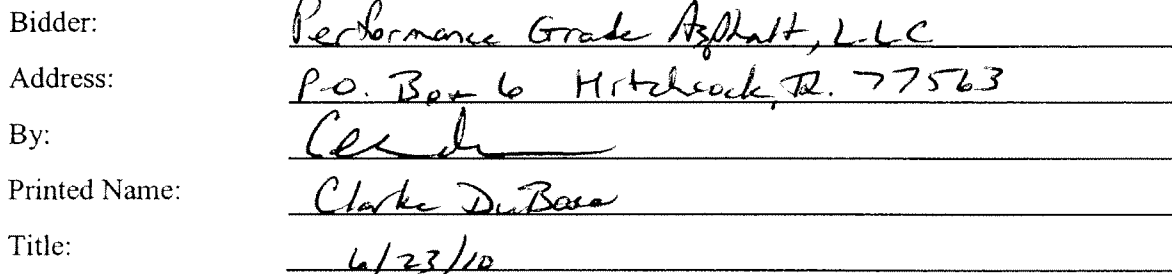 Bidder: Performance Grade Asphalt, LLC
Address: P.O. Box 6 Hitchcock, TX. 77563
By:
Printed Name: Clarke DuBose
Title: 6/23/10